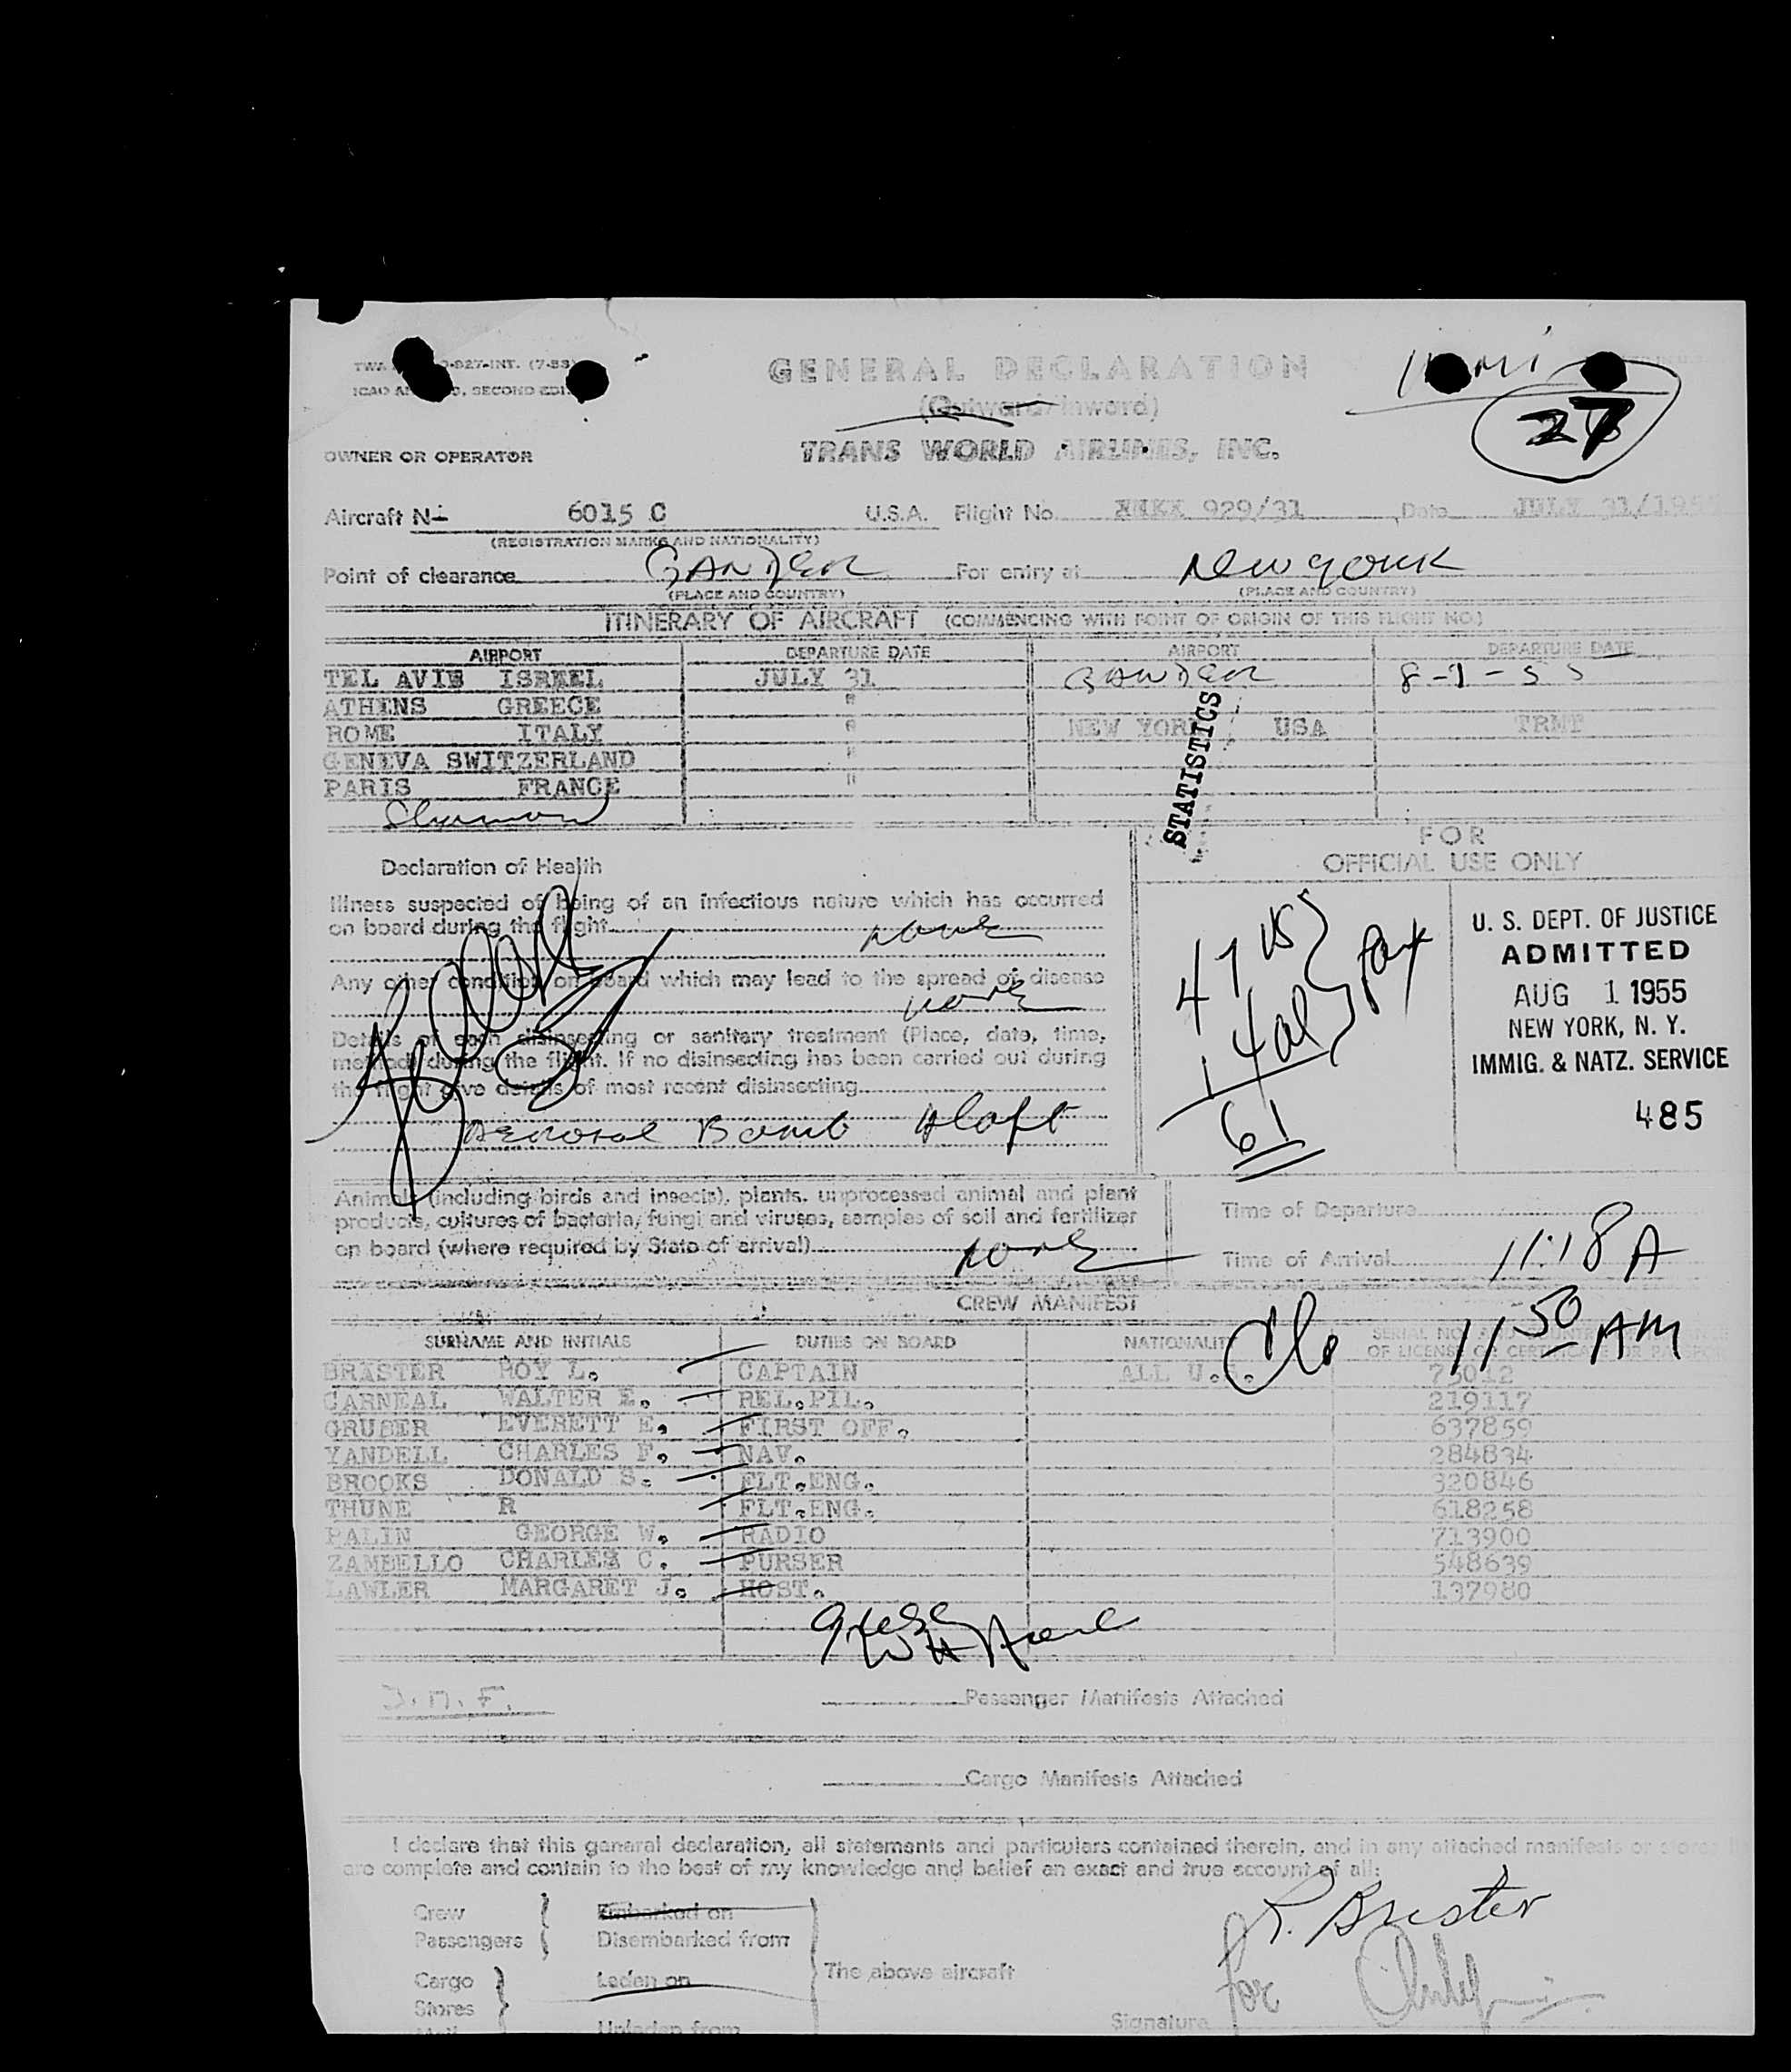 GENERAL DECLARATION
(Outward/Inward)
27
OWNER OR OPERATOR
TRANS WORLD AIRLINES, INC.
Aircraft N- 6015 C U.S.A. Flight No. 929/31 Date JULY 31/195
(REGISTRATION MARKS AND NATIONALITY)
Point of clearance GANDER For entry at NEW YORK
(PLACE AND COUNTRY) (PLACE AND COUNTRY)
ITINERARY OF AIRCRAFT (COMMENCING WITH POINT OF ORIGIN OF THIS FLIGHT NO.)
AIRPORT DEPARTURE DATE AIRPORT DEPARTURE DATE
TEL AVIB ISREEL JULY 31 GANDER 8-1-55
ATHENS GREECE "
ROME ITALY " NEW YORK, USA TRMT
GENEVA SWITZERLAND "
PARIS FRANCE "
Shannon
STATISTICS
FOR
OFFICIAL USE ONLY
Declaration of Health
Illness suspected of being of an infectious nature which has occurred
on board during the flight none
Any other condition on board which may lead to the spread of disease
none
Details of each disinsecting or sanitary treatment (Place, date, time,
method) during the flight. If no disinsecting has been carried out during
the flight give details of most recent disinsecting
Aerosol Bomb
47 US
14 al
pax
61
U. S. DEPT. OF JUSTICE
ADMITTED
AUG 1 1955
NEW YORK, N. Y.
IMMIG. & NATZ. SERVICE
485
Animals (including birds and insects), plants, unprocessed animal and plant
products, cultures of bacteria, fungi and viruses, samples of soil and fertilizer
on board (where required by State of arrival) none
Time of Departure
Time of Arrival 11:18 A
11 50 AM
CREW MANIFEST
SURNAME AND INITIALS DUTIES ON BOARD NATIONALITY SERIAL NO. AND COUNTRY
OF LICENSE OR CERTIFICATE OR PASSPO
BRASTER ROY L. CAPTAIN ALL U.S. 73012
CARNEAL WALTER E. REL.PIL. 219117
GRUBER EVERETT E. FIRST OFF. 637859
YANDELL CHARLES F. NAV. 284834
BROOKS DONALD S. FLT.ENG. 320846
THUNE R FLT.ENG. 618258
PALIN GEORGE W. RADIO 713900
ZAMBELLO CHARLES C. PURSER 548639
LAWLER MARGARET J. HOST. 137980
J.M.F.
Passenger Manifests Attached
Cargo Manifests Attached
I declare that this general declaration, all statements and particulars contained therein, and in any attached manifests or stores
are complete and contain to the best of my knowledge and belief an exact and true account of all:
Crew
Passengers
Embarked on
Disembarked from
Cargo
Stores
Laden on
Unladen from
The above aircraft
R. Brester
for
Signature